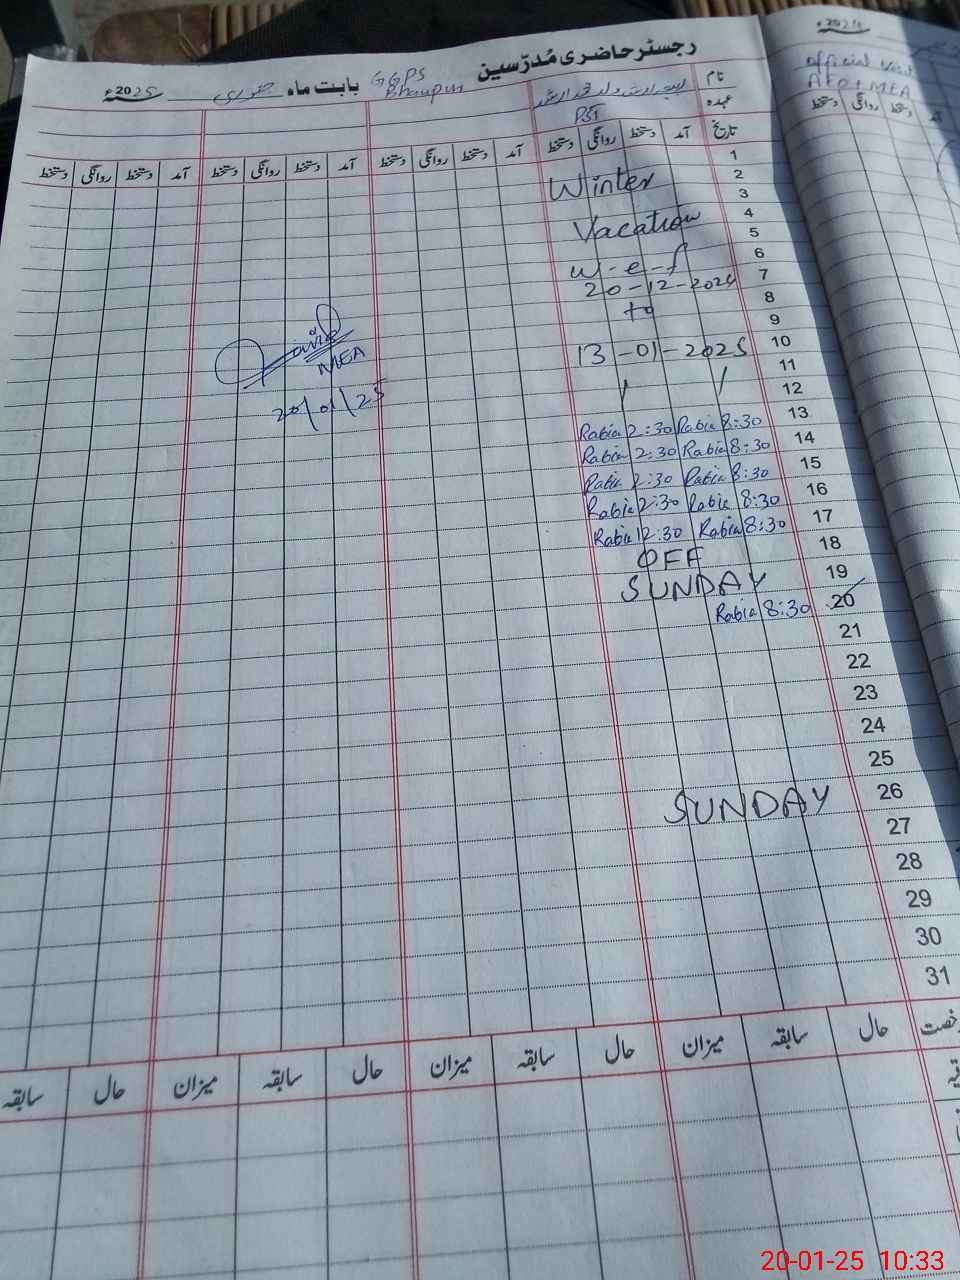 رجسٹر حاضری مُدرّسین GGPS بابت ماہ جنوری 2025ء
نام
عہدہ PST
تاریخ آمد دستخط روانگی دستخط آمد دستخط روانگی دستخط آمد دستخط روانگی دستخط آمد دستخط روانگی دستخط
1
2 Winter
3
4 Vacation
5
6 w-e-f
7 20-12-2024
8 to
9
10 13-01-2025
11
12
13 Rabia 2:30 Rabia 8:30
14 Rabia 2:30 Rabia 8:30
15 Rabia 2:30 Rabia 8:30
16 Rabia 2:30 Rabia 8:30
17 Rabia 12:30 Rabia 8:30
18 OFF
19 SUNDAY
20 Rabia 8:30
21
22
23
24
25
26 SUNDAY
27
28
29
30
31
MEA
20/01/25
حال سابقہ میزان حال سابقہ میزان حال سابقہ میزان حال سابقہ
2024ء
official visit
AEO + MEA
دستخط روانگی دستخط
20-01-25 10:33